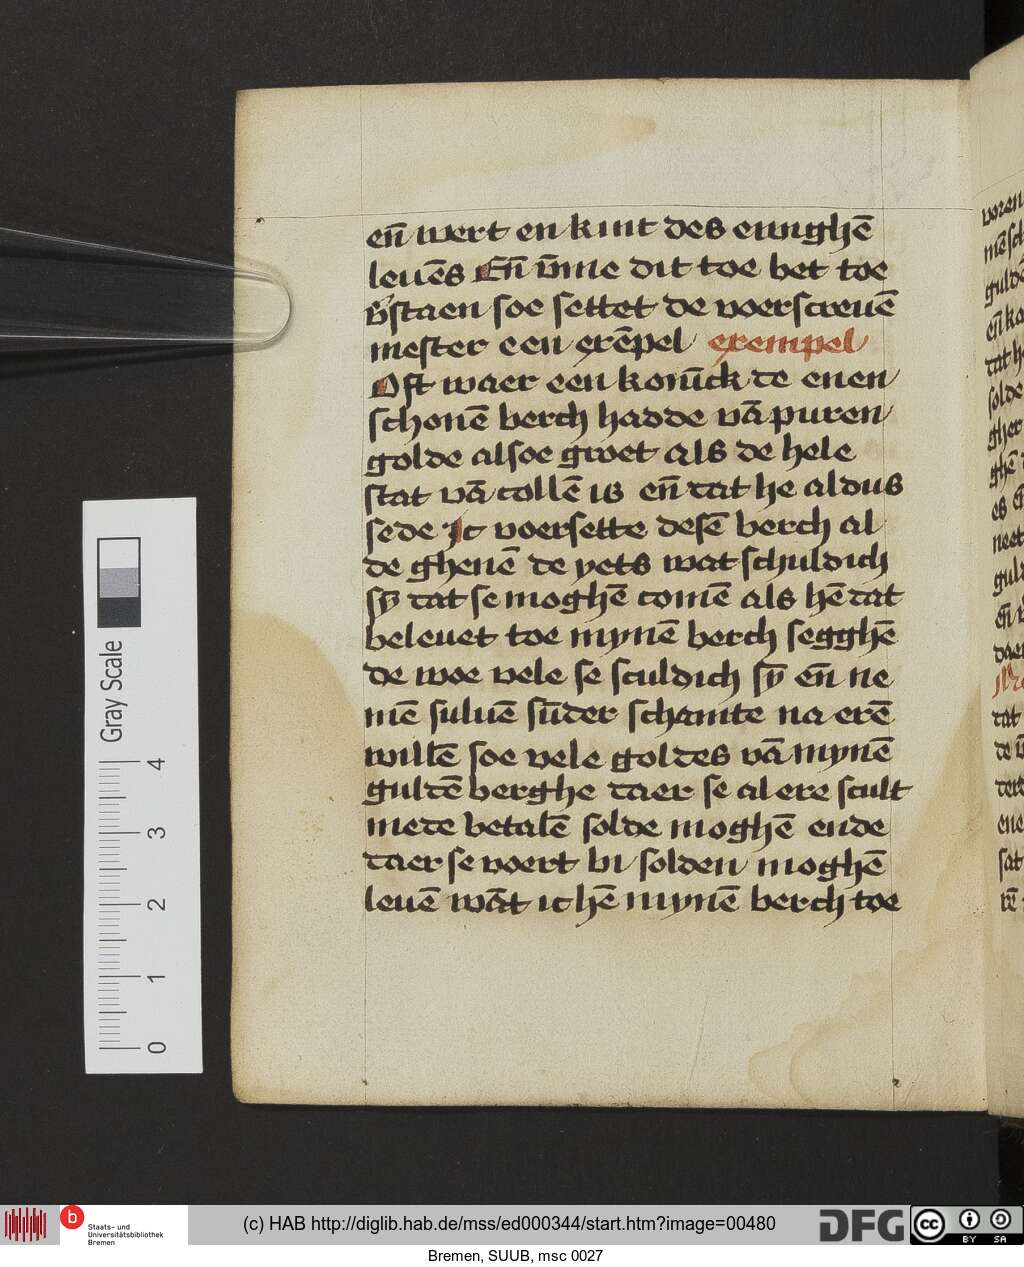 en̄ wert en kint des ewighē
leuēs En̄ v̄me dit toe bet toe
v̓staen soe settet de voerscreuē
mester een exēpel exempel
Oft waer een konīck de enen
schonē berch hadde vā puren
golde alsoe groet als de hele
stat vā collē is en̄ dat he aldus
sede Ic voersette desē berch al
de ghenē de yets wat schuldich
sȳ dat se moghē comē als hē dat
beleuet toe mynē berch segghē
de woe vele se sculdich sȳ en̄ ne
mē suluē sūder schamte na erē
willē soe vele goldes vā mynē
guldē berghe daer se al ere scult
mede betalē solde moghē ende
daer se voert bi solden moghē
leuē wāt ic hē mynē berch toe
voren
gulde
en̄ ko
dat h
solde
gher
ghē
es
neet
guld
en̄
daer
dat
de
dere
ene
sat
Gray Scale
4
3
2
1
0
b Staats- und
Universitätsbibliothek
Bremen
(c) HAB http://diglib.hab.de/mss/ed000344/start.htm?image=00480
DFG
cc BY SA
Bremen, SUUB, msc 0027